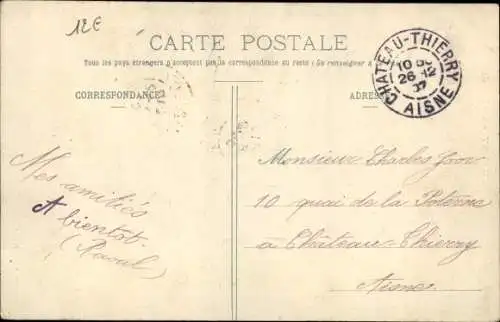 12€
CARTE POSTALE
Tous les pays étrangers n'acceptent pas la correspondance au recto (Se renseigner à
CORRESPONDANCE
ADRES
CHATEAU-THIERRY
10
26 12
07
AISNE
Mes amitiés
A bientot.
(Raoul)
Monsieur Charles
10 quai de la Poterne
à Château-Thierry
Aisne